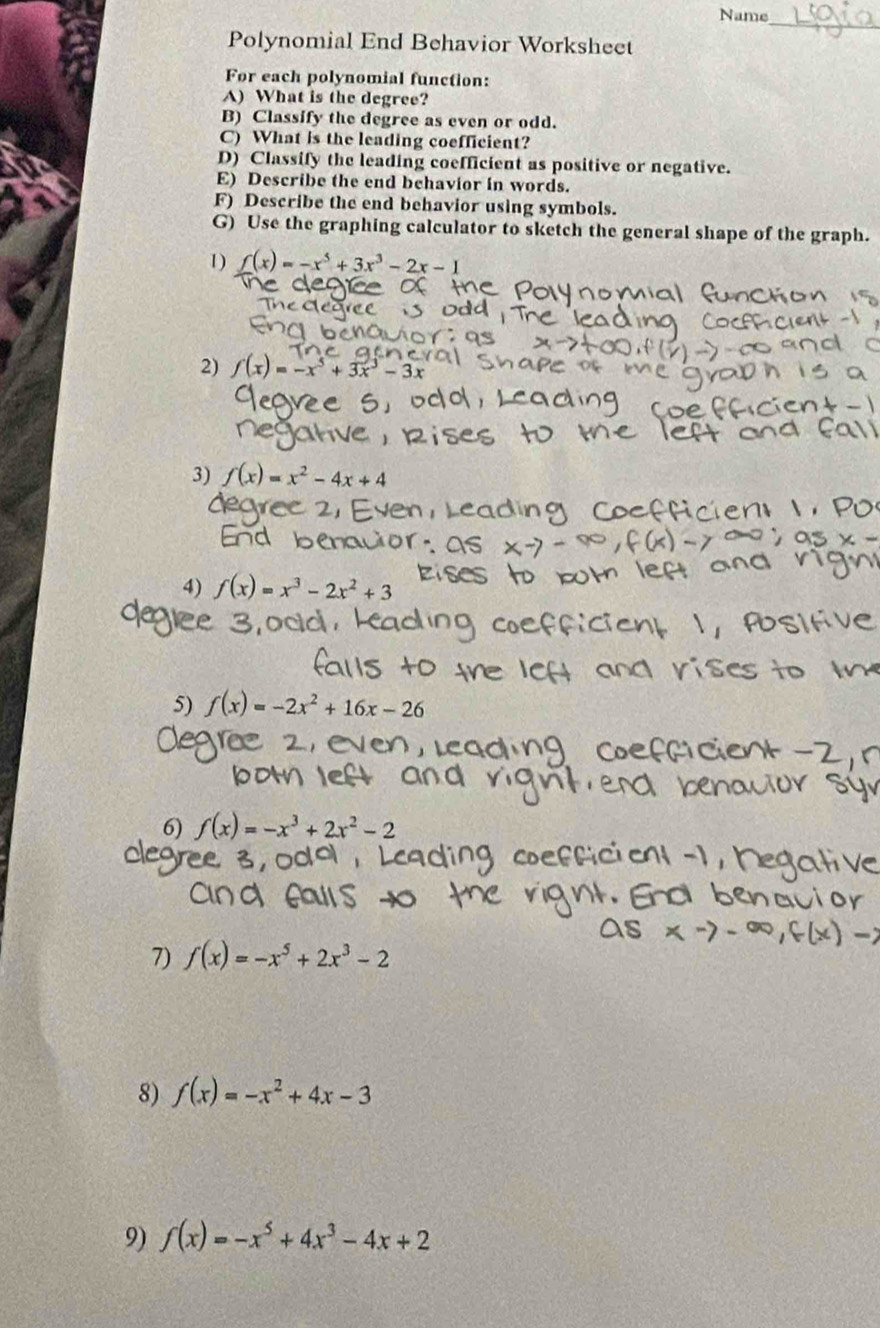 Name Ligia
Polynomial End Behavior Worksheet
For each polynomial function:
A) What is the degree?
B) Classify the degree as even or odd.
C) What is the leading coefficient?
D) Classify the leading coefficient as positive or negative.
E) Describe the end behavior in words.
F) Describe the end behavior using symbols.
G) Use the graphing calculator to sketch the general shape of the graph.
1) f(x) = -x⁵ + 3x³ - 2x - 1
The degree of the Polynomial function is
The degree is odd, The leading coefficient -1,
End behavior: as x→+∞, f(x)→-∞ and
The general shape of the graph is a
2) f(x) = -x⁵ + 3x³ - 3x
degree 5, odd, Leading coefficient -1
negative, Rises to the left and fall
3) f(x) = x² - 4x + 4
degree 2, Even, Leading Coefficient 1, Po
End behavior: as x→-∞, f(x)→∞; as x-
Rises to both left and right
4) f(x) = x³ - 2x² + 3
degree 3, odd, Leading coefficient 1, Positive
falls to the left and rises to the
5) f(x) = -2x² + 16x - 26
Degree 2, even, Leading coefficient -2, n
both left and right, end behavior sy
6) f(x) = -x³ + 2x² - 2
degree 3, odd, Leading coefficient -1, negative
and falls to the right. End behavior
as x→-∞, f(x)→
7) f(x) = -x⁵ + 2x³ - 2
8) f(x) = -x² + 4x - 3
9) f(x) = -x⁵ + 4x³ - 4x + 2